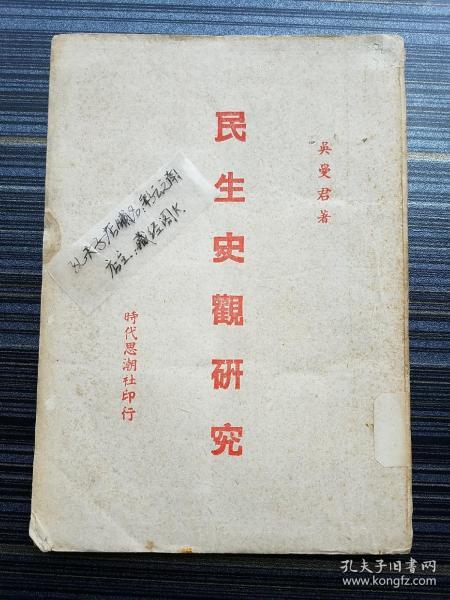 吳曼君著
民生史觀研究
時代思潮社印行
店主：藏经阁K
孔夫子旧书网
www.kongfz.com